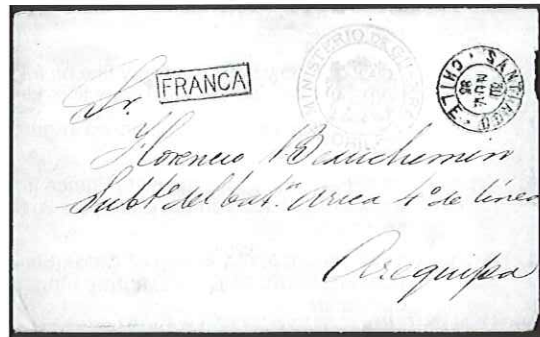 FRANCA
MINISTERIO DE GUERRA
SANTIAGO
CHILE
Sr.
Florencio Beauchemin
Subte del bat.n Arica 4° de línea
Arequipa